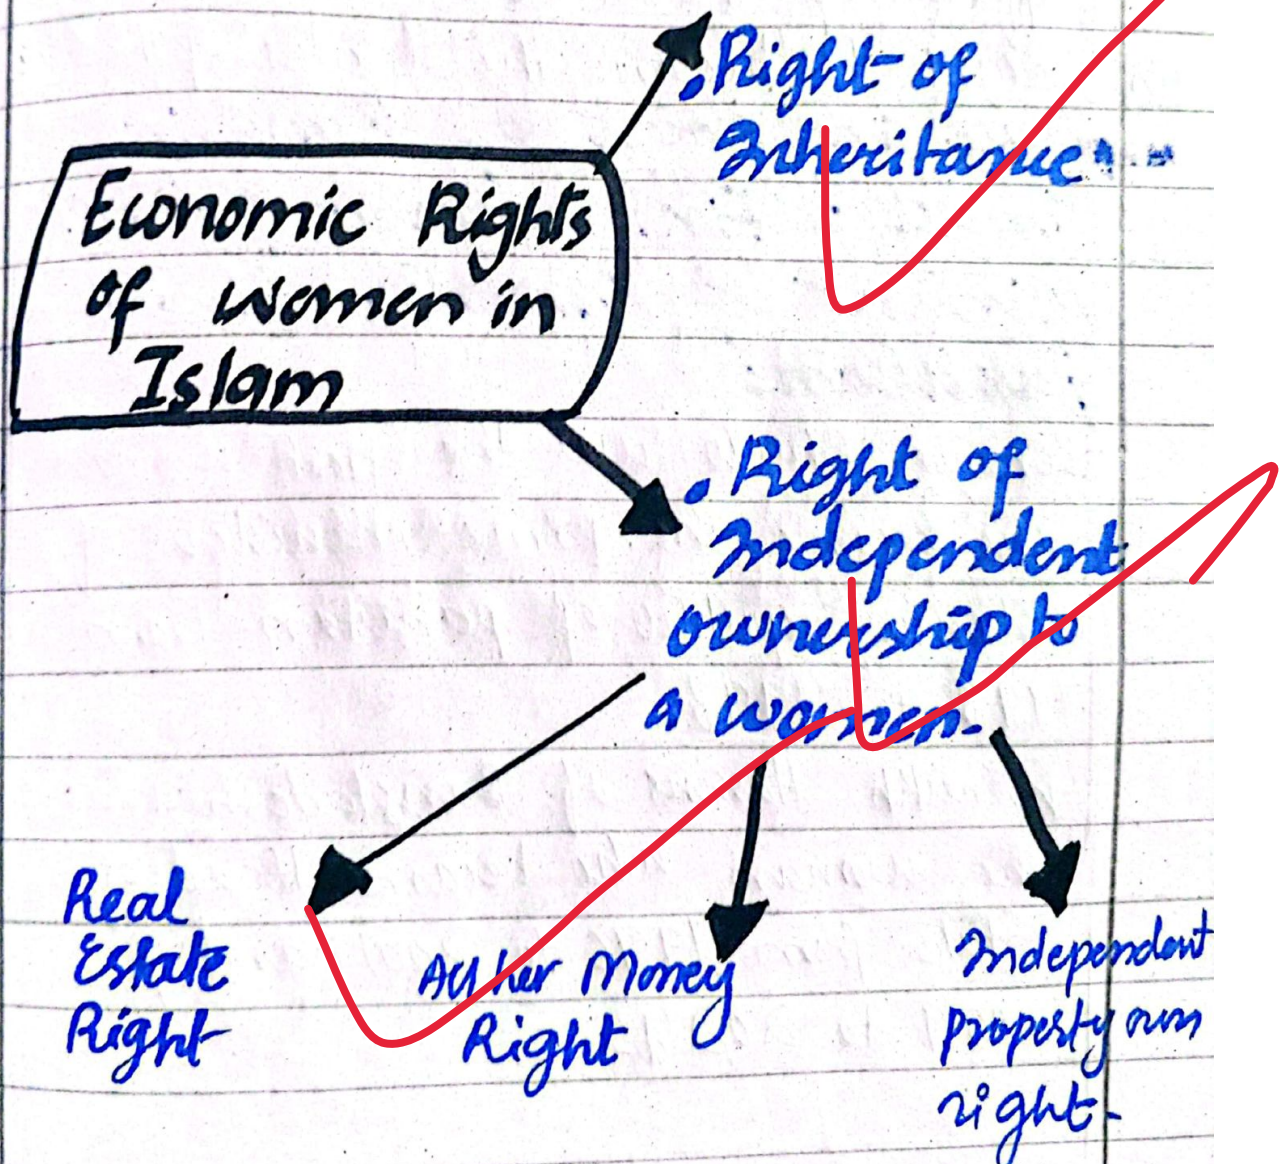 Economic Rights
of women in
Islam
. Right of
Inheritance
. Right of
Independent
ownership to
a women.
Real
Estate
Right
All her Money
Right
Independent
property own
right.